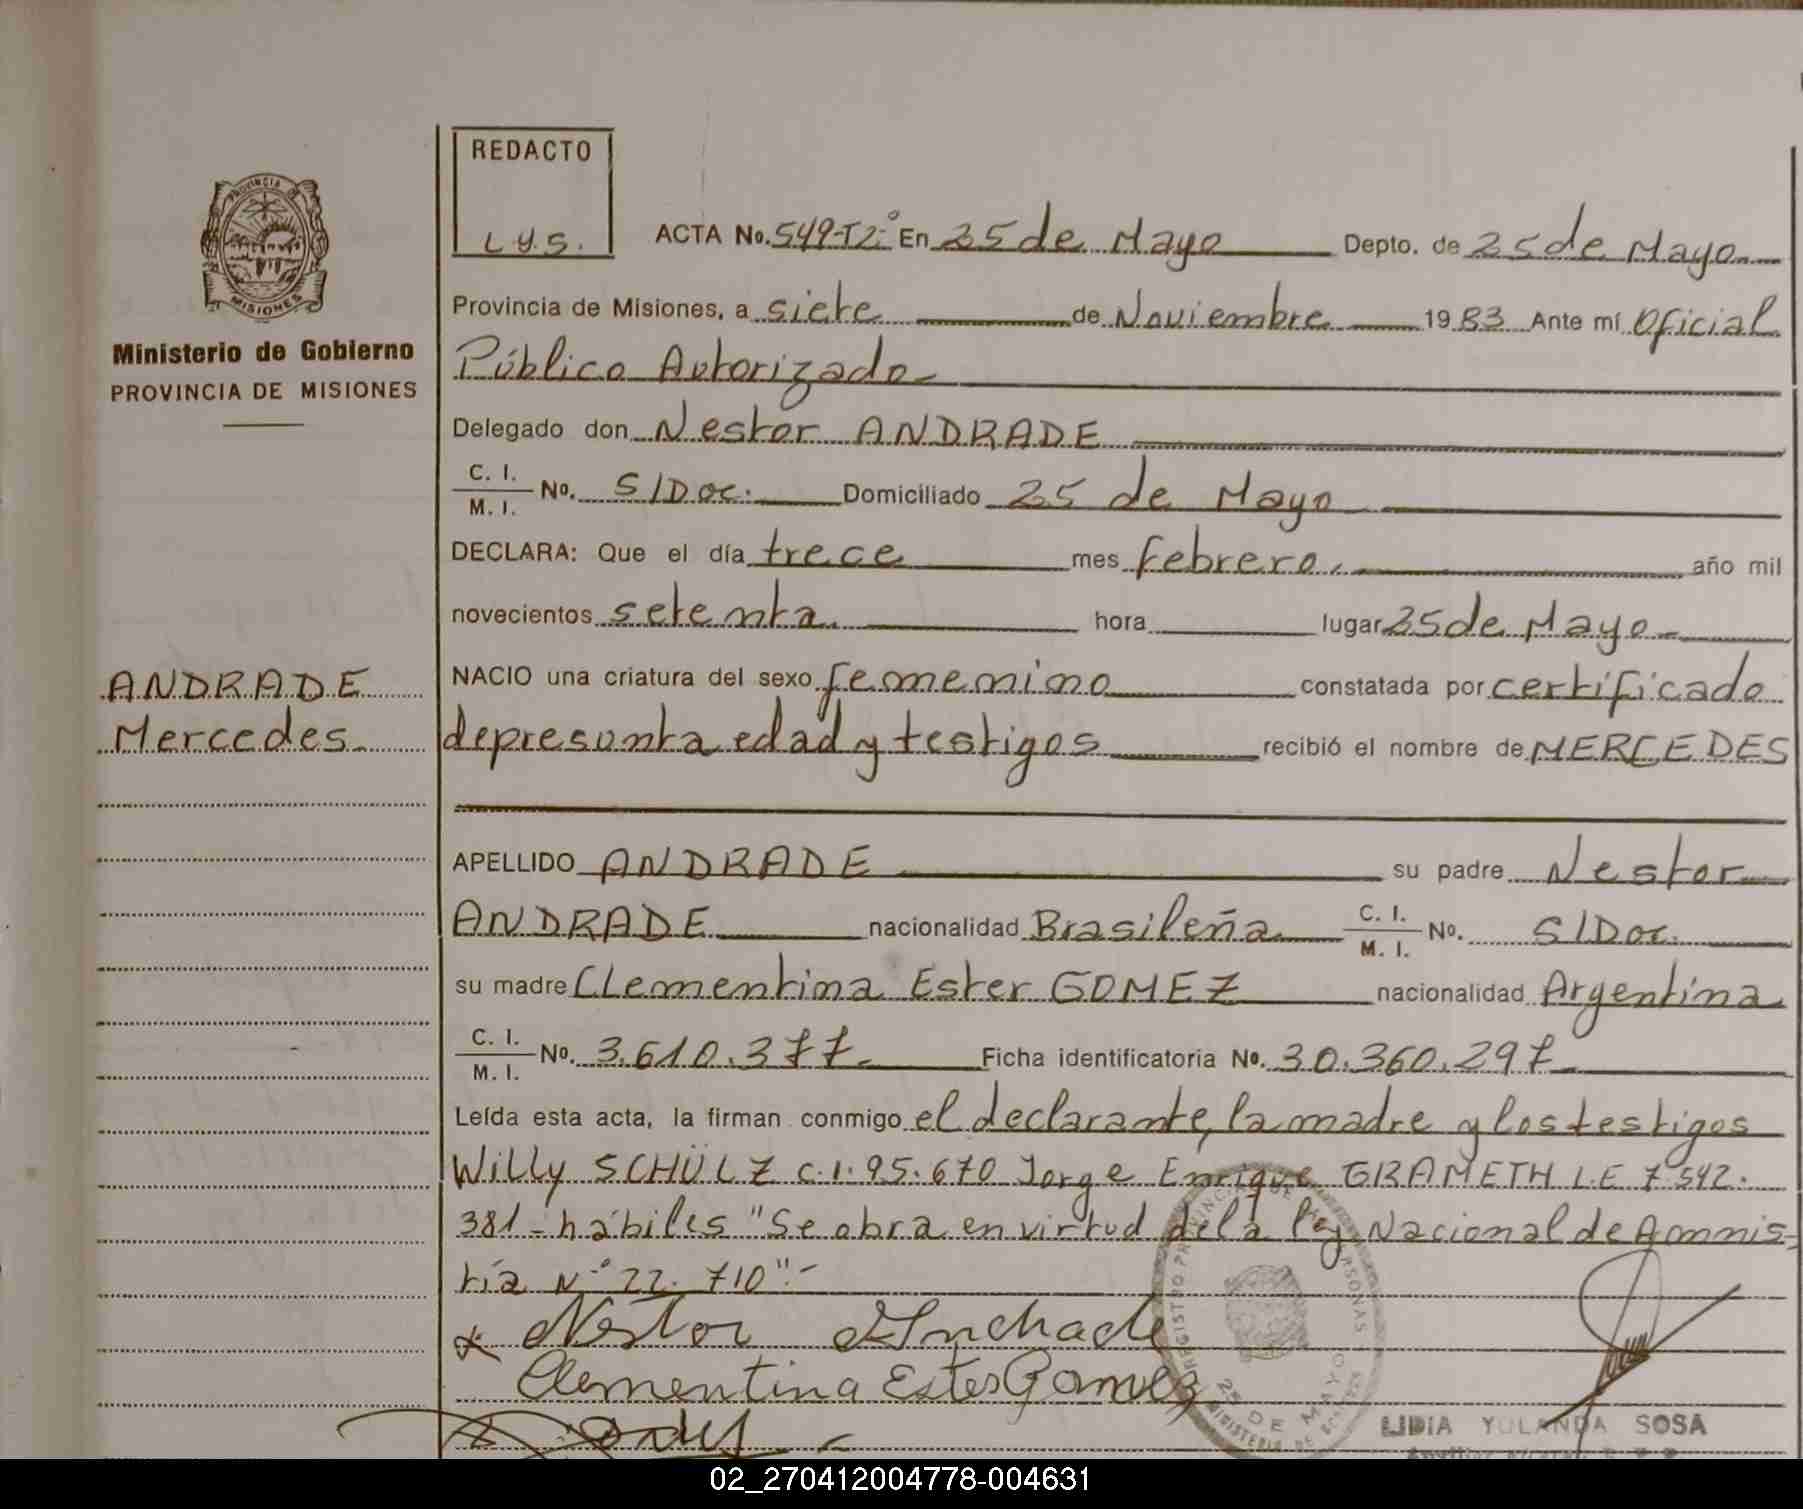 REDACTO
L.Y.S.
PROVINCIA DE
MISIONES
Ministerio de Gobierno
PROVINCIA DE MISIONES
ACTA No. 549-T2º En 25 de Mayo Depto. de 25 de Mayo
Provincia de Misiones, a siete de Noviembre 1983 Ante mí Oficial
Público Autorizado
Delegado don Nestor ANDRADE
C. I. M. I. No. S/Doc. Domiciliado 25 de Mayo
DECLARA: Que el día trece mes febrero. año mil
novecientos setenta hora lugar 25 de Mayo
ANDRADE
Mercedes
NACIO una criatura del sexo femenino constatada por certificado
de presunta edad y testigos recibió el nombre de MERCEDES
APELLIDO ANDRADE su padre Nestor
ANDRADE nacionalidad Brasileña C. I. M. I. No. S/Doc.
su madre Clementina Ester GOMEZ nacionalidad Argentina
C. I. M. I. No. 3.610.377 Ficha identificatoria No. 30.360.297
Leída esta acta, la firman conmigo el declarante, la madre y los testigos
Willy SCHÜLZ C.I. 95.670 Jorge Enrique GRAMETH L.E 7.542.
381 - hábiles "Se obra en virtud de la ley Nacional de Amnis-
tía Nº 22.710".-
Nestor Andrade
Clementina Ester Gomez
25 DE MAYO
LIDIA YOLANDA SOSA
02_270412004778-004631